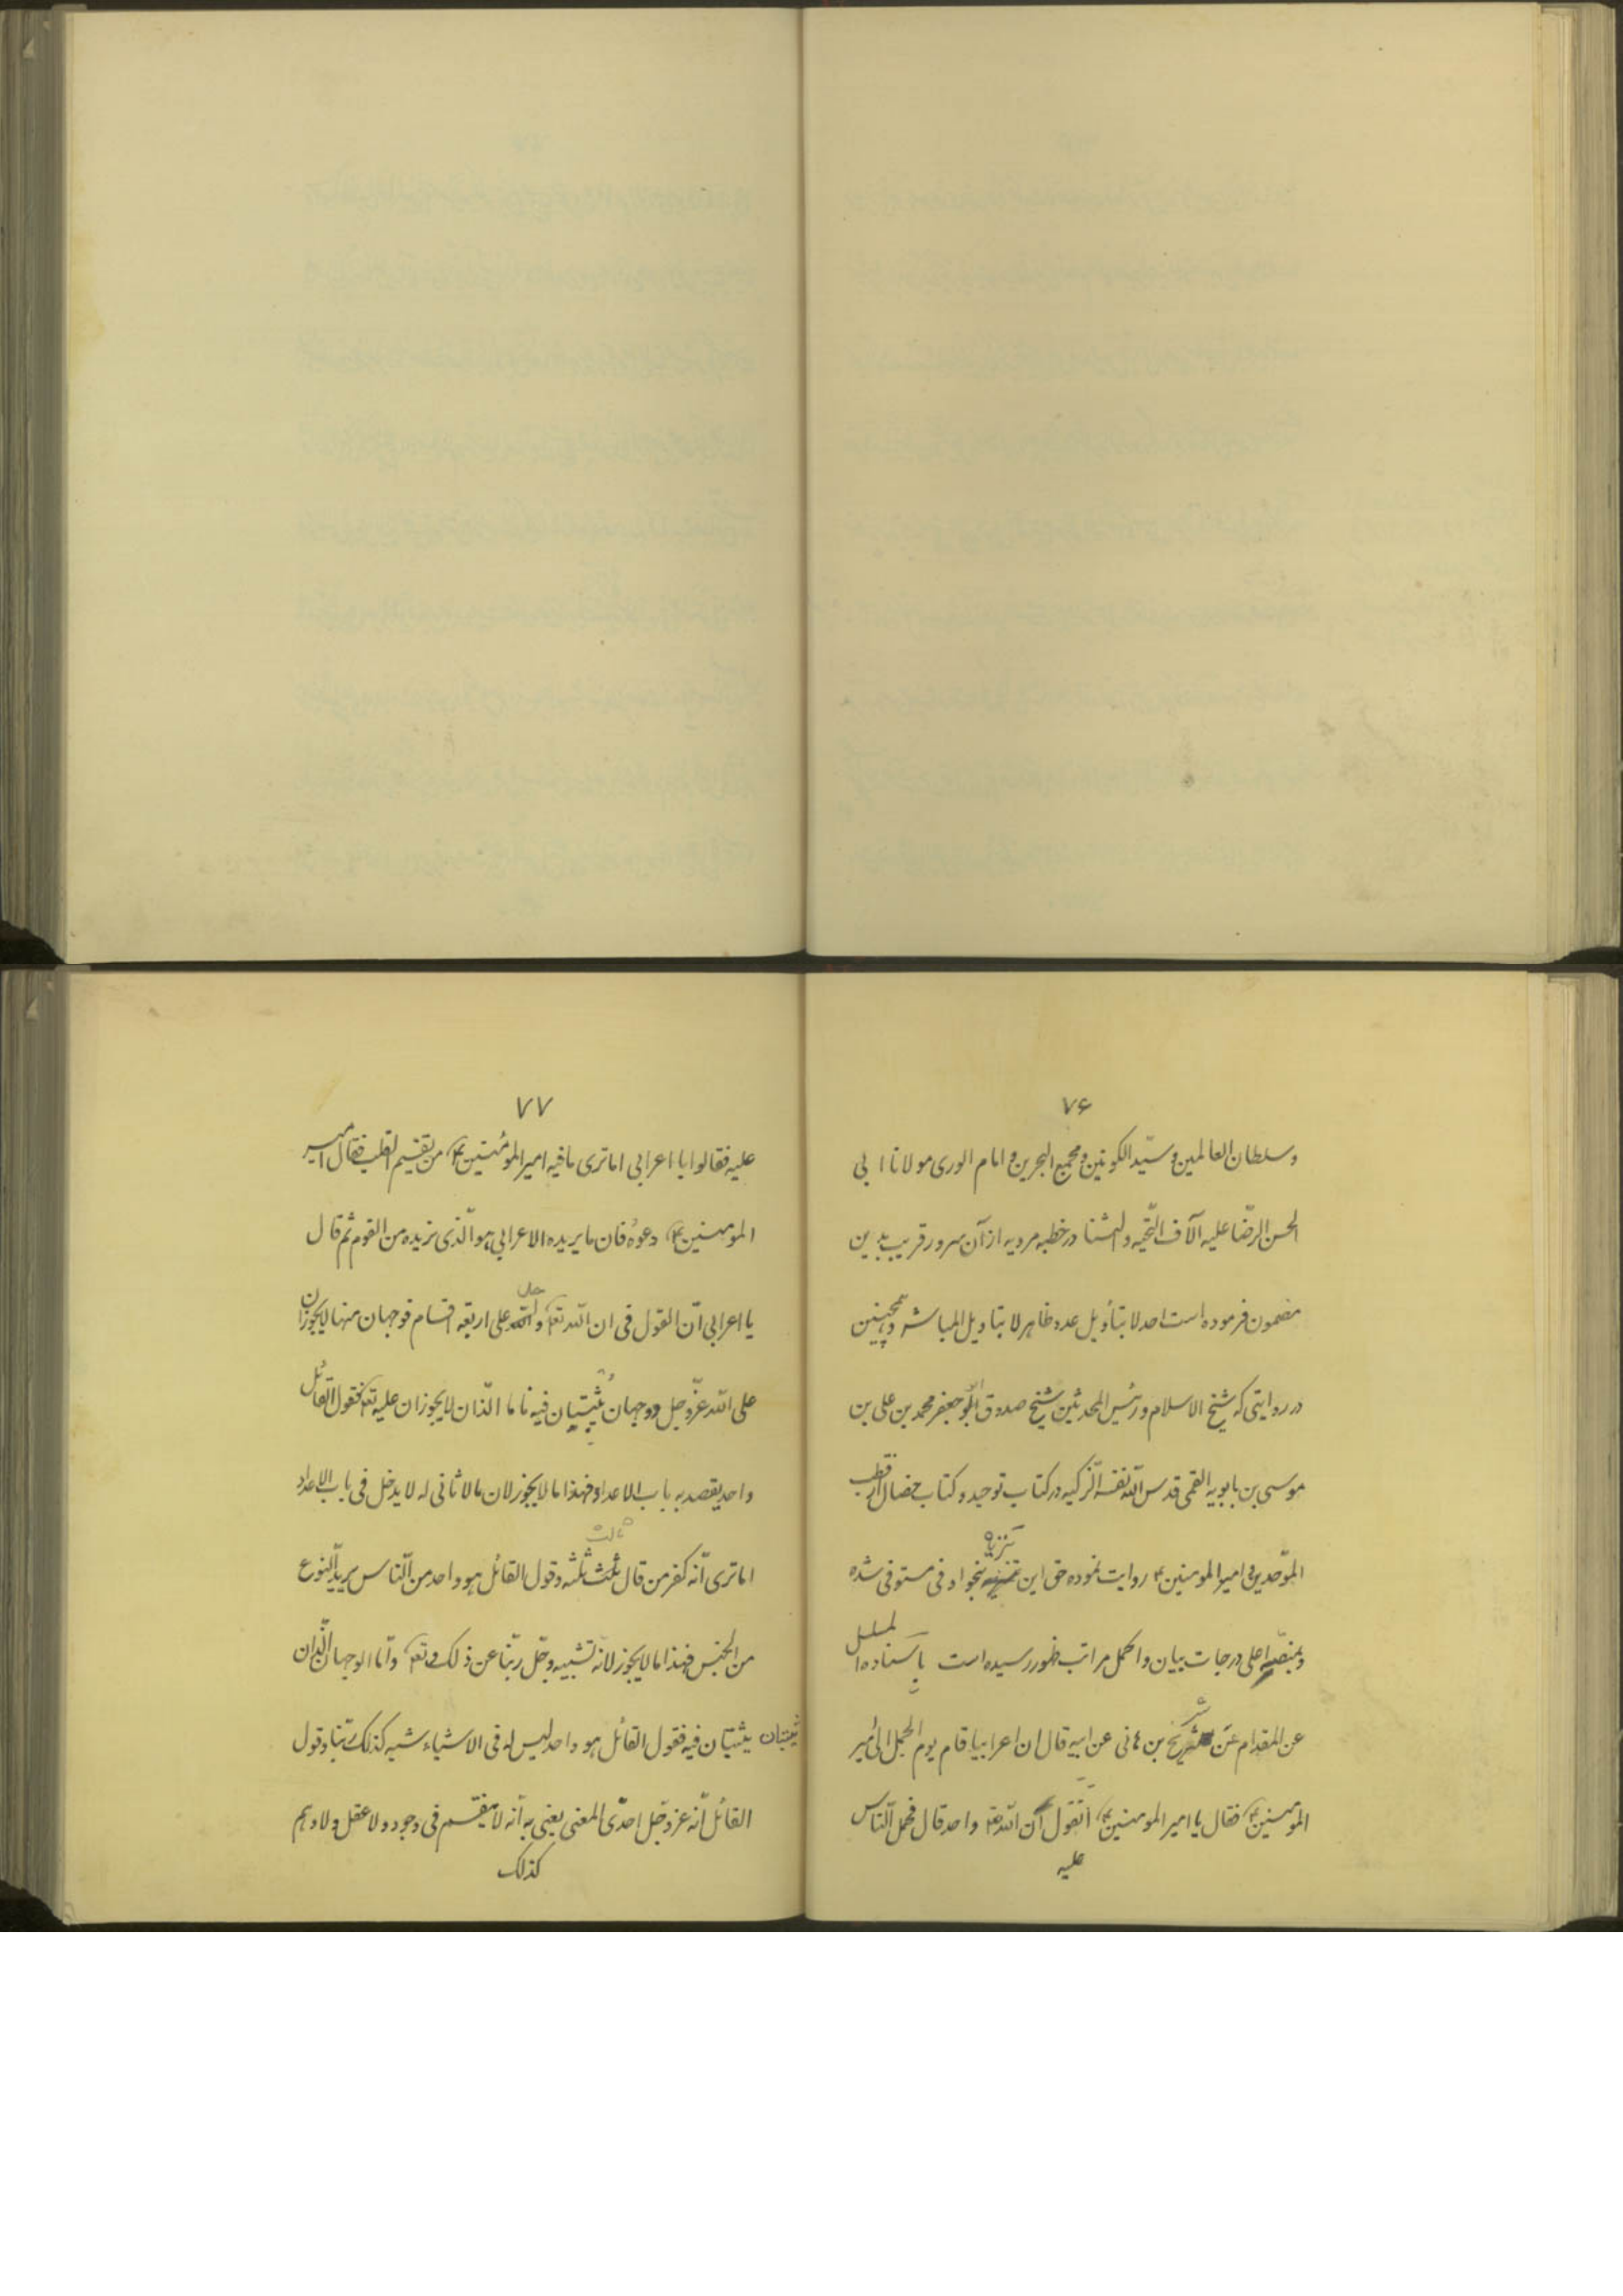 ۷۶
و سلطان العالمین و سیّد الکونین و مجمع البحرین و امام الوری مولانا ابی
الحسن الرّضا علیه آلاف التّحیه و الثنا در خطبه مرویه از آن سرور قریب بدین
مضمون فرموده است احد لا بتأویل عدد ظاهر لا بتاویل المباشره و همچنین
در روایتی که شیخ الاسلام و رئیس المحدثین شیخ صدوق ابو جعفر محمد بن علی بن
موسی بن بابویه القمی قدس اللّه نفسه الزکیه در کتاب توحید و کتاب خصال از قطب
الموّحدین امیر المومنین ع روایت نموده حق این تنزیه بنحو اوفی مستوفی شده
و بمنصّه اعلی درجات بیان و اکمل مراتب ظهور رسیده است باسناده
عن المقدام عن شریح بن هانی عن ابیه قال ان اعرابیا قام یوم الجمل الی امیر
المومنین ع فقال یا امیر المومنین ع اتقول ان اللّه واحد قال فحمل النّاس
علیه
۷۷
علیه فقالوا یا اعرابی اماتری مافیه امیر المومنین ع من تقسیم القلب فقال امیر
المومنین ع دعوه فان ما یریده الاعرابی هو الّذی نریده من القوم ثم قال
یا اعرابی انّ القول فی ان اللّه تع واحد علی اربعة اقسام فوجهان منها لایجوزان
علی اللّه عزّ و جل و وجهان یثبتیان فیه فاما الّذان لایجوزان علیه تع فقول القائل
واحد یقصد به باب الاعداد فهذا ما لایجوز لان مالا ثانی له لا یدخل فی باب الاعداد
اماتری انّه کفر من قال ثالث ثلثه و قول القائل هو واحد من النّاس یرید النّوع
من الجنس فهذا ما لایجوز لانّه تشبیه و جلّ ربّنا عن ذلک و تع و امّا الوجهان الّذان
یثبتان فیه فقول القائل هو واحد لیس له فی الاشیاء شبه کذلک ربّنا و قول
القائل انّه عز و جّل احدّی المعنی یعنی به انّه لا ینقسم فی وجود و لا عقل و لا وهم
کذلک